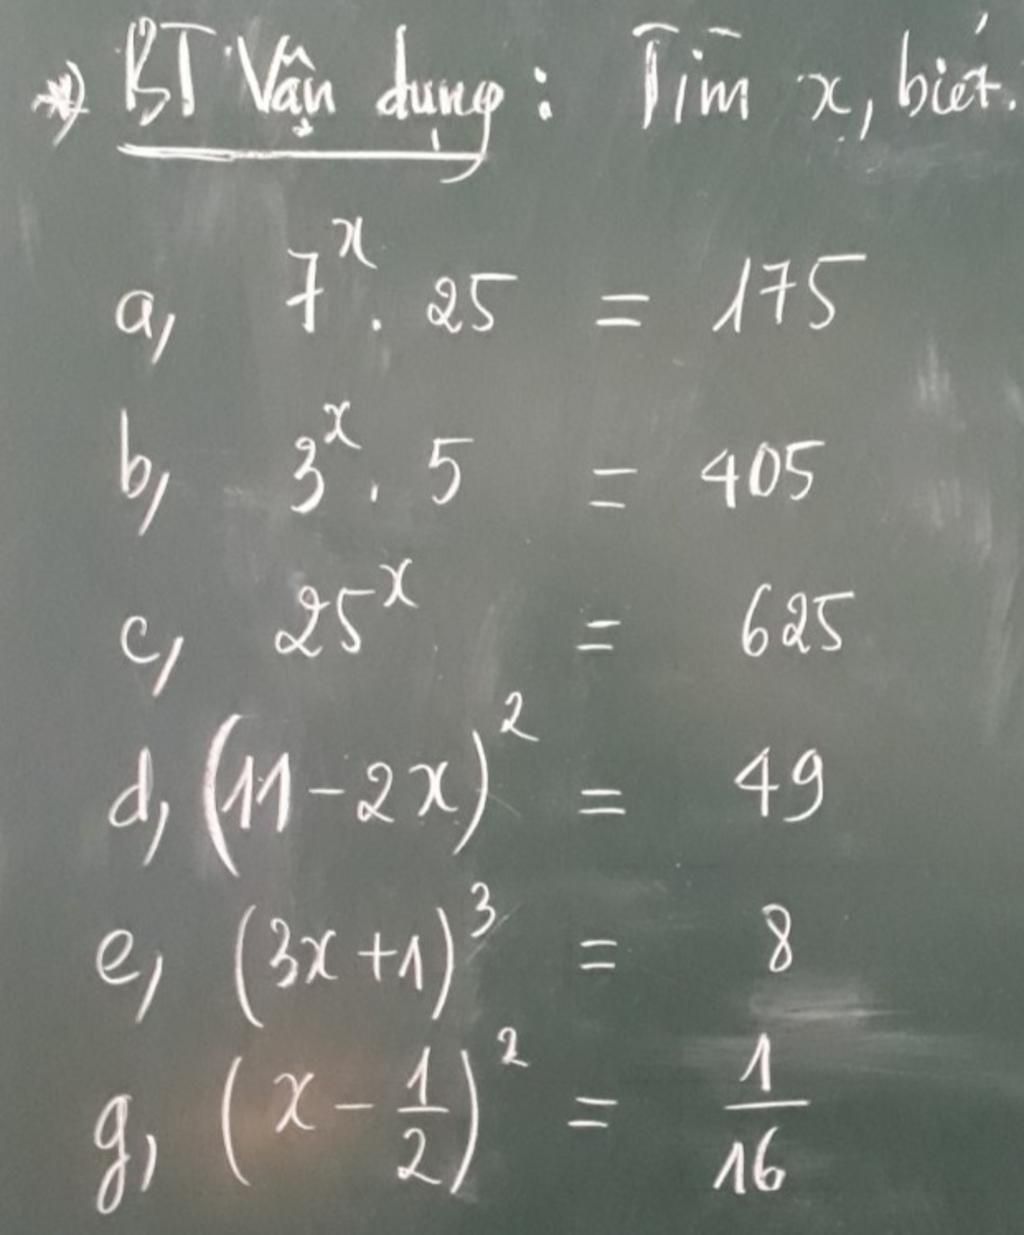 *) BT Vận dụng: Tìm x, biết.
a, 7^x . 25 = 175
b, 3^x . 5 = 405
c, 25^x = 625
d, (11 - 2x)^2 = 49
e, (3x + 1)^3 = 8
g, (x - 1/2)^2 = 1/16